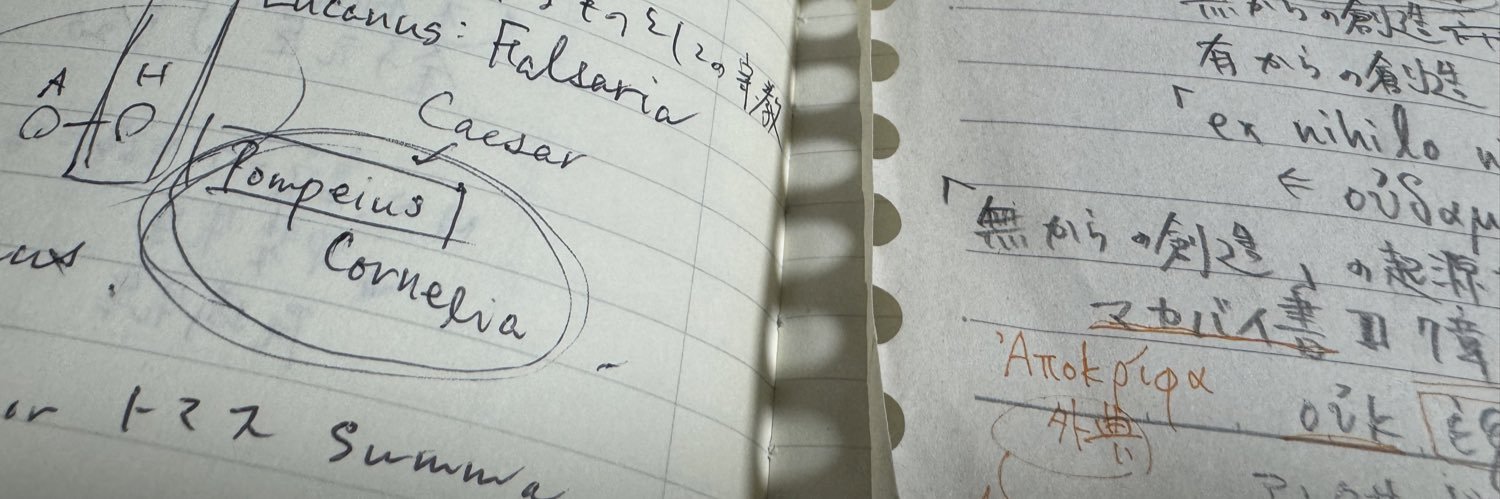 Lucanus: Falsaria
A H
Caesar
Pompeius
Cornelia
トマス Summa
無からの創造
有からの創造
「ex nihilo
← οὐδαμ
「無からの創造」の起源
マカバイ書 II 7章
Ἀποκρίφα
外典
οὐκ ἐξ